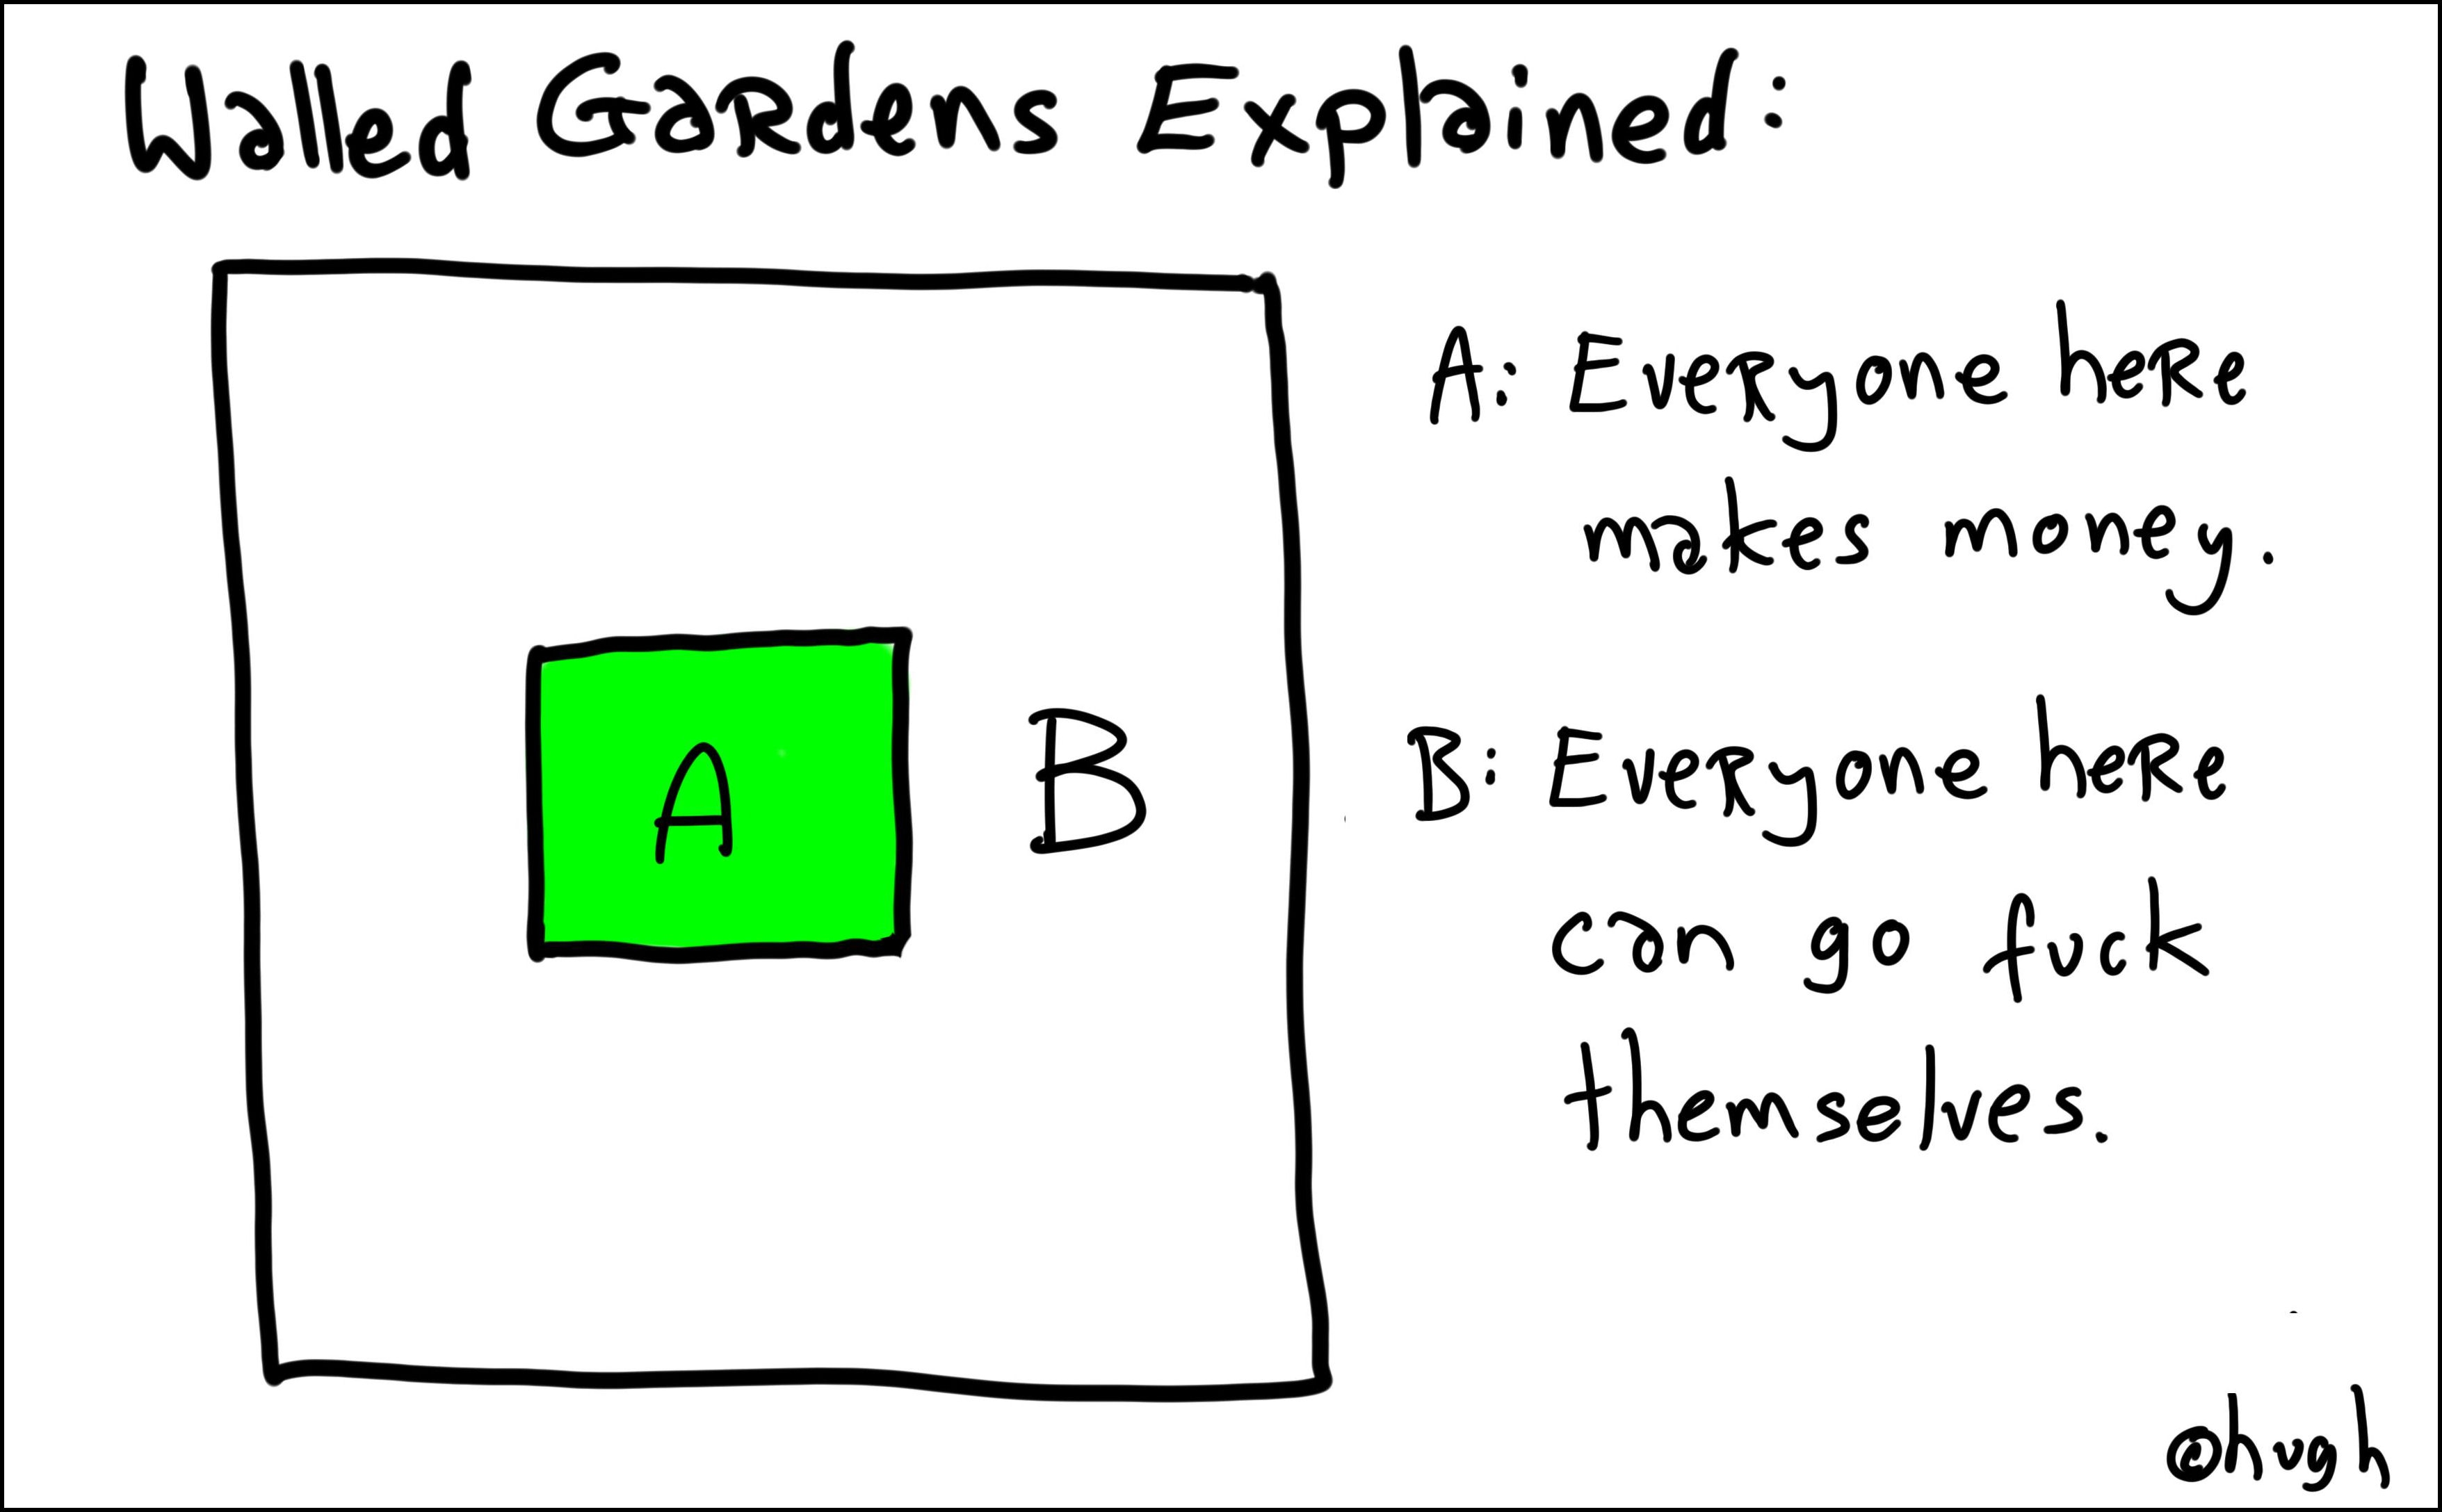 Walled Gardens Explained:
A: Everyone here
makes money.
A
B
B: Everyone here
can go fuck
themselves.
@hugh